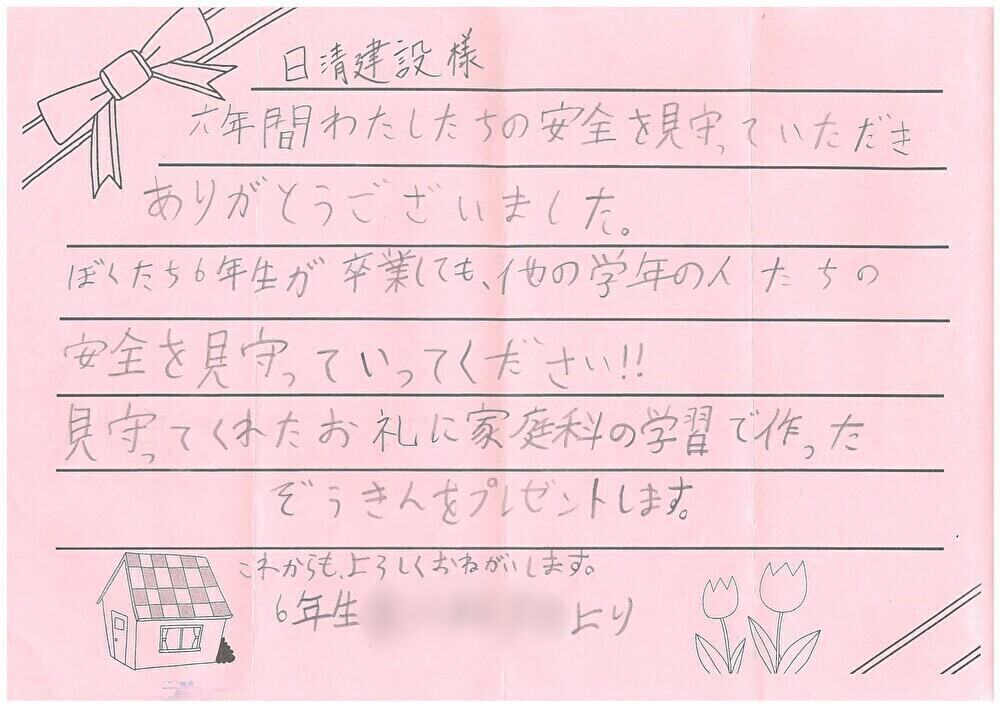 日清建設様
六年間わたしたちの安全を見守っていただき
ありがとうございました。
ぼくたち6年生が卒業しても、他の学年の人たちの
安全を見守っていってください!!
見守ってくれたお礼に家庭科の学習で作った
ぞうきんをプレゼントします。
これからも、よろしくおねがいします。
6年生
より